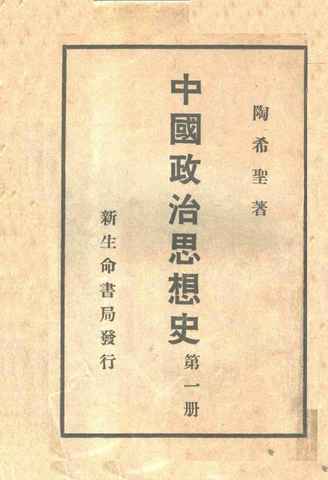 陶希聖著
中國政治思想史
第一册
新生命書局發行